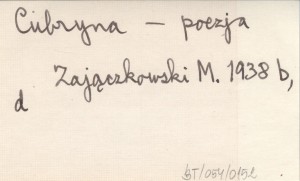 Cubryna — poezja
Zajączkowski M. 1938 b,
d
ST/054/015.2